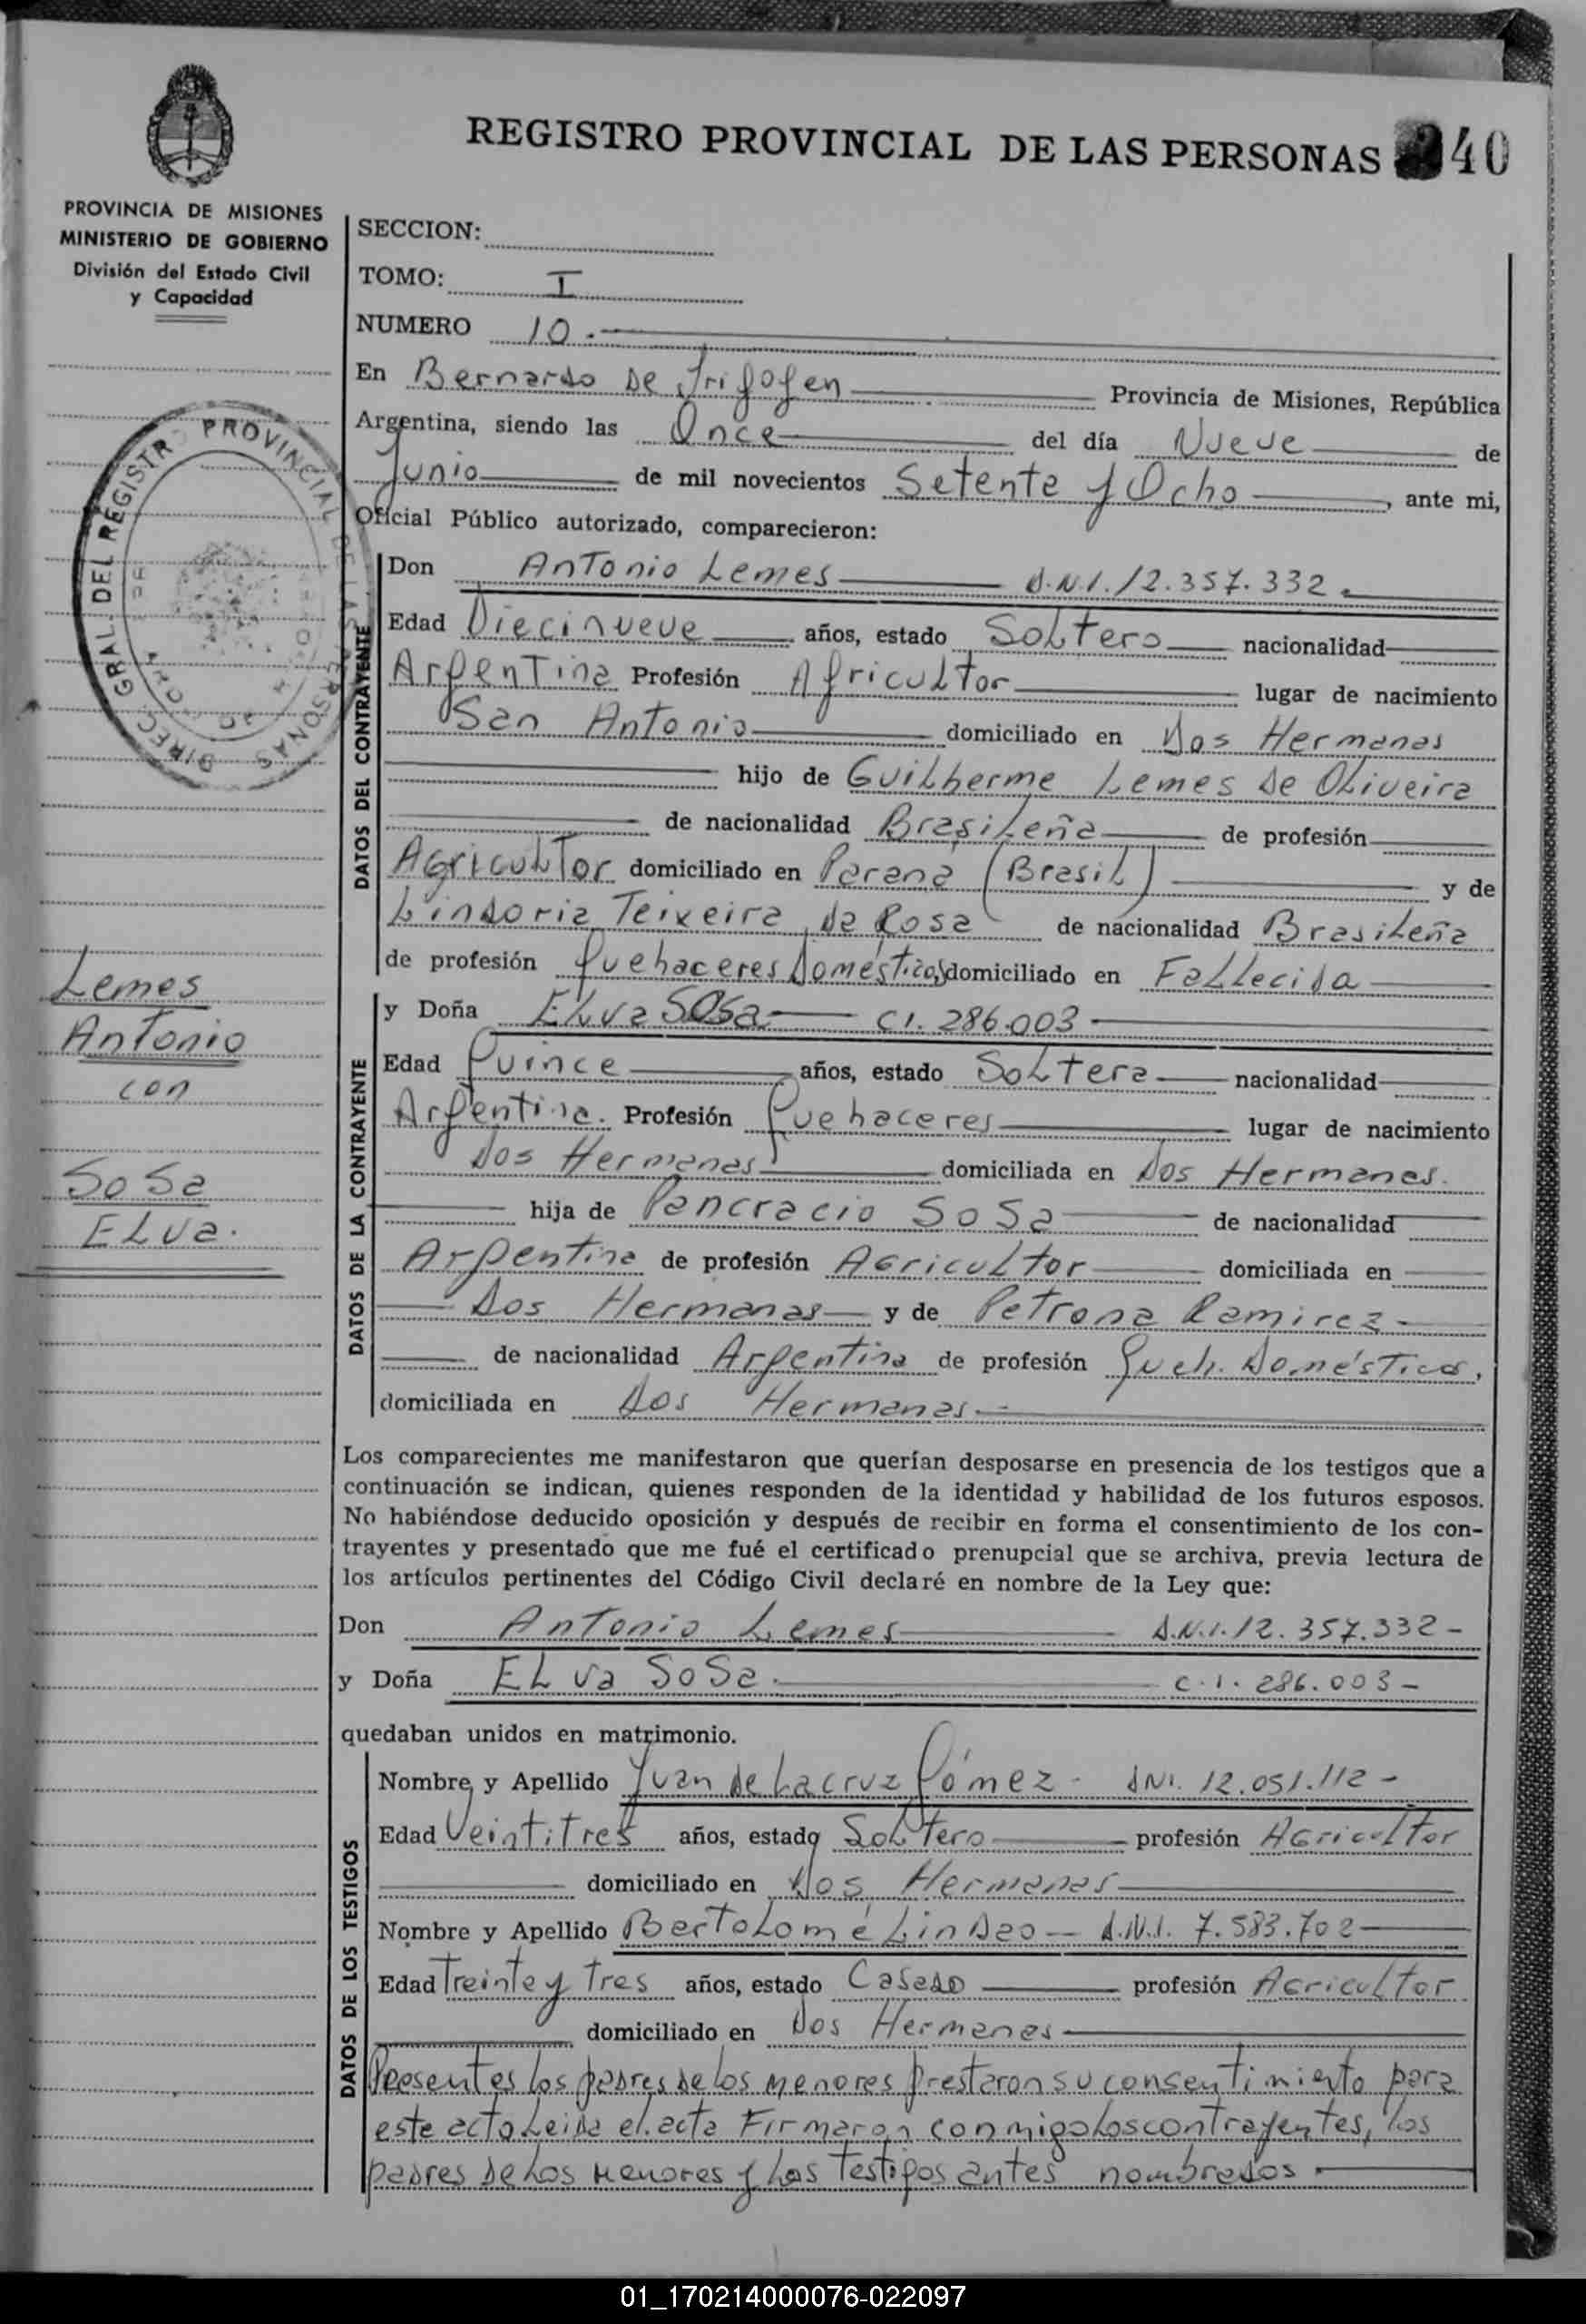 REGISTRO PROVINCIAL DE LAS PERSONAS 240
PROVINCIA DE MISIONES
MINISTERIO DE GOBIERNO
División del Estado Civil
y Capacidad
DIREC. GRAL. DEL REGISTRO PROVINCIAL DE LAS PERSONAS
Lemes
Antonio
con
Sosa
Elva.
SECCION:
TOMO: I
NUMERO 10.
En Bernardo de Irigoyen Provincia de Misiones, República
Argentina, siendo las Once del día Nueve de
Junio de mil novecientos Setenta y Ocho, ante mi,
Oficial Público autorizado, comparecieron:
DATOS DEL CONTRAYENTE
Don Antonio Lemes D.N.I. 12.357.332.
Edad Diecinueve años, estado Soltero nacionalidad
Argentina Profesión Agricultor lugar de nacimiento
San Antonio domiciliado en Dos Hermanas
hijo de Guilherme Lemes de Oliveira
de nacionalidad Brasileña de profesión
Agricultor domiciliado en Paraná (Brasil) y de
Lindoria Teixeira da Rosa de nacionalidad Brasileña
de profesión Quehaceres Domésticos, domiciliado en Fallecida
DATOS DE LA CONTRAYENTE
y Doña Elva Sosa CI. 286.003
Edad Quince años, estado Soltera nacionalidad
Argentina. Profesión Quehaceres lugar de nacimiento
Dos Hermanas domiciliada en Dos Hermanas.
hija de Pancracio Sosa de nacionalidad
Argentina de profesión Agricultor domiciliada en
Dos Hermanas y de Petrona Ramirez
de nacionalidad Argentina de profesión Queh. Domésticos,
domiciliada en Dos Hermanas
Los comparecientes me manifestaron que querían desposarse en presencia de los testigos que a
continuación se indican, quienes responden de la identidad y habilidad de los futuros esposos.
No habiéndose deducido oposición y después de recibir en forma el consentimiento de los con-
trayentes y presentado que me fué el certificado prenupcial que se archiva, previa lectura de
los artículos pertinentes del Código Civil declaré en nombre de la Ley que:
Don Antonio Lemes D.N.I. 12.357.332-
y Doña Elva Sosa. C.I. 286.003-
quedaban unidos en matrimonio.
DATOS DE LOS TESTIGOS
Nombre y Apellido Juan de la cruz Gómez - DNI. 12.051.112-
Edad Veintitres años, estado Soltero profesión Agricultor
domiciliado en Dos Hermanas
Nombre y Apellido Bartolomé Lindao D.N.I. 7.583.702
Edad Treinta y Tres años, estado Casado profesión Agricultor
domiciliado en Dos Hermanas
Presentes los padres de los menores prestaron su consentimiento para
este acto Leida el acta Firmaron conmigo los contrayentes, los
padres de los menores y los Testigos antes nombrados.
01_170214000076-022097